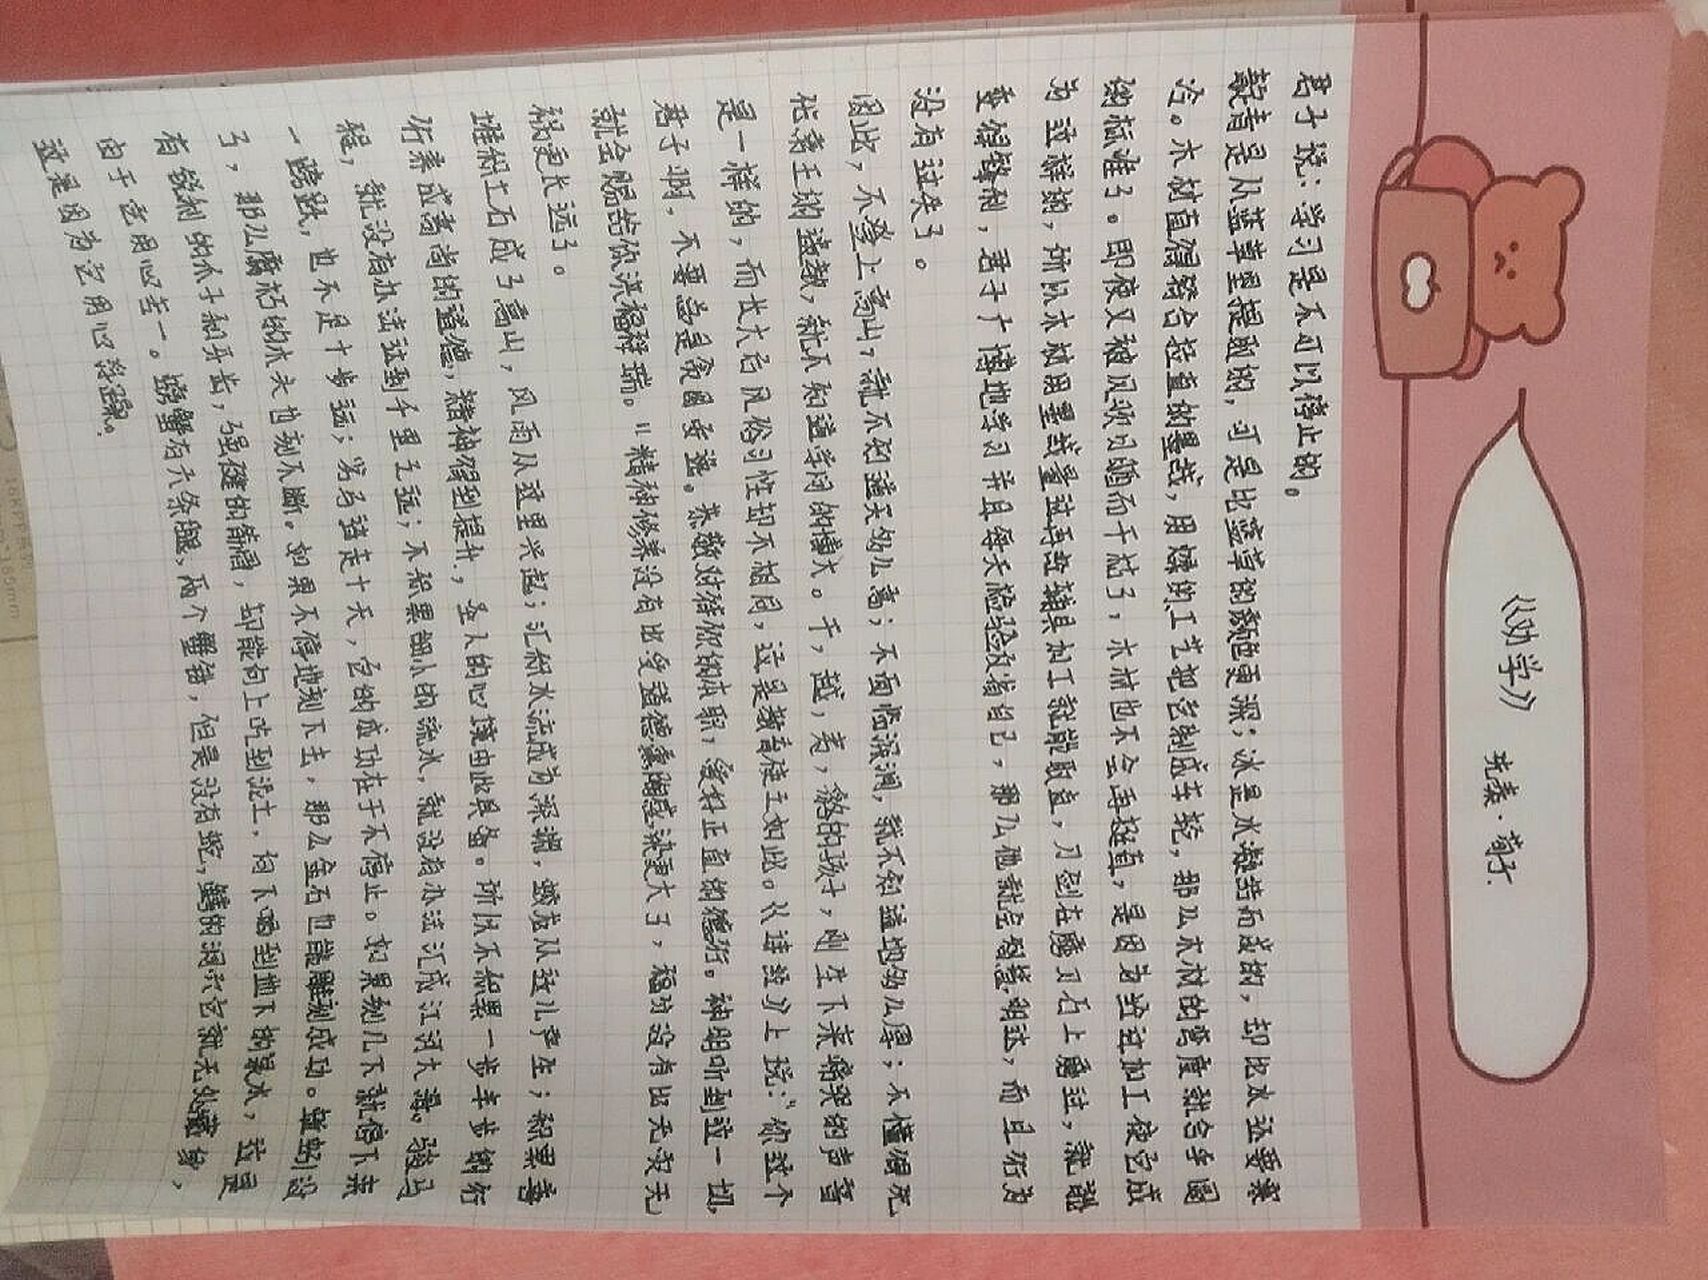 《劝学》
先秦·荀子.
君子说：学习是不可以停止的。
靛青是从蓝草里提取的，可是比蓝草的颜色更深；冰是水凝结而成的，却比水还要寒
冷。木材直得符合拉直的墨线，用煣的工艺把它制成车轮，那么木材的弯度就合乎圆
的标准了。即使又被风吹日晒而干枯了，木材也不会再挺直，是因为经过加工使它成
为这样的，所以木材用墨线量过再经辅具加工就能取直，刀剑在磨刀石上磨过，就能
变得锋利，君子广博地学习并且每天检验反省自己，那么他就会智慧明达，而且行为
没有过失了。
因此，不登上高山，就不知道天多么高；不面临深涧，就不知道地多么厚；不懂得先
代帝王的遗教，就不知道学问的博大。干，越，夷，貉的孩子，刚生下来啼哭的声音
是一样的，而长大后风俗习性却不相同，这是教育使之如此。《诗经》上说：“你这个
君子啊，不要总是贪图安逸。恭敬对待你的本职，爱好正直的德行。神明听到这一切，
就会赐给你洪福祥瑞。”精神修养没有比受道德熏陶感染更大了，福分没有比无灾无
祸更长远了。
堆积土石成了高山，风雨从这里兴起；汇积水流成为深渊，蛟龙从这儿产生；积累善
行养成高尚的道德，精神得到提升，圣人的心境由此具备。所以不积累一步半步的行
程，就没有办法达到千里之远；不积累细小的流水，就没有办法汇成江河大海。骏马
一跨跃，也不足十步远；劣马连走十天，它的成功在于不停止。如果刻几下就停下来
了，那么腐朽的木头也刻不断。如果不停地刻下去，那么金石也能雕刻成功。蚯蚓没
有锐利的爪子和牙齿，强健的筋骨，却能向上吃到泥土，向下喝到地下的泉水，这是
由于它用心专一。螃蟹有六条腿，两个蟹钳，但是没有蛇，鳝的洞穴它就无处藏身，
这是因为它用心浮躁。